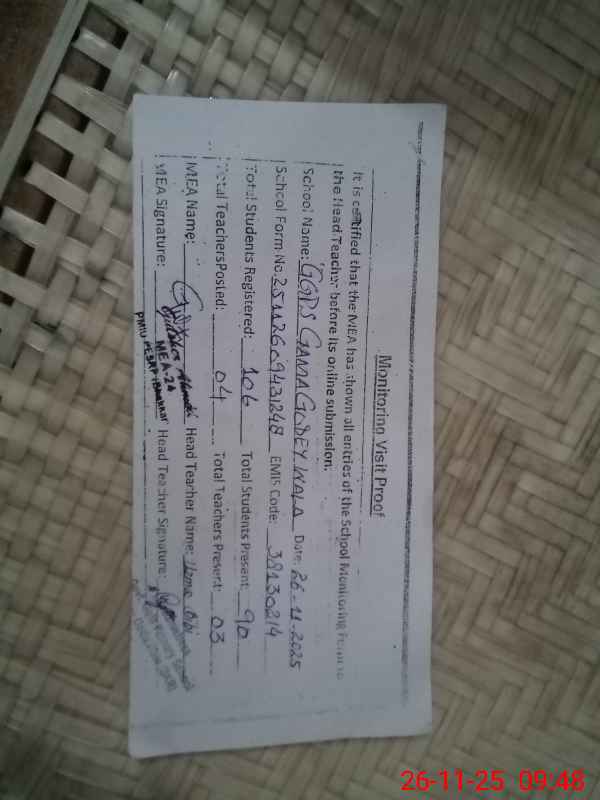 Monitoring Visit Proof
It is certified that the MEA has shown all entries of the School Monitoring Form to
the Head Teacher before its online submission.
School Name: GGPS GAMA GUDEY WALA Date: 26-11-2025
School Form No. 25112609431248 EMIS Code: 38130214
Total Students Registered: 106 Total Students Present: 90
Total Teachers Posted: 04 Total Teachers Present: 03
MEA Name: Head Teacher Name: Bibi
MEA Signature: Head Teacher Signature:
MEA-26
26-11-25 09:48